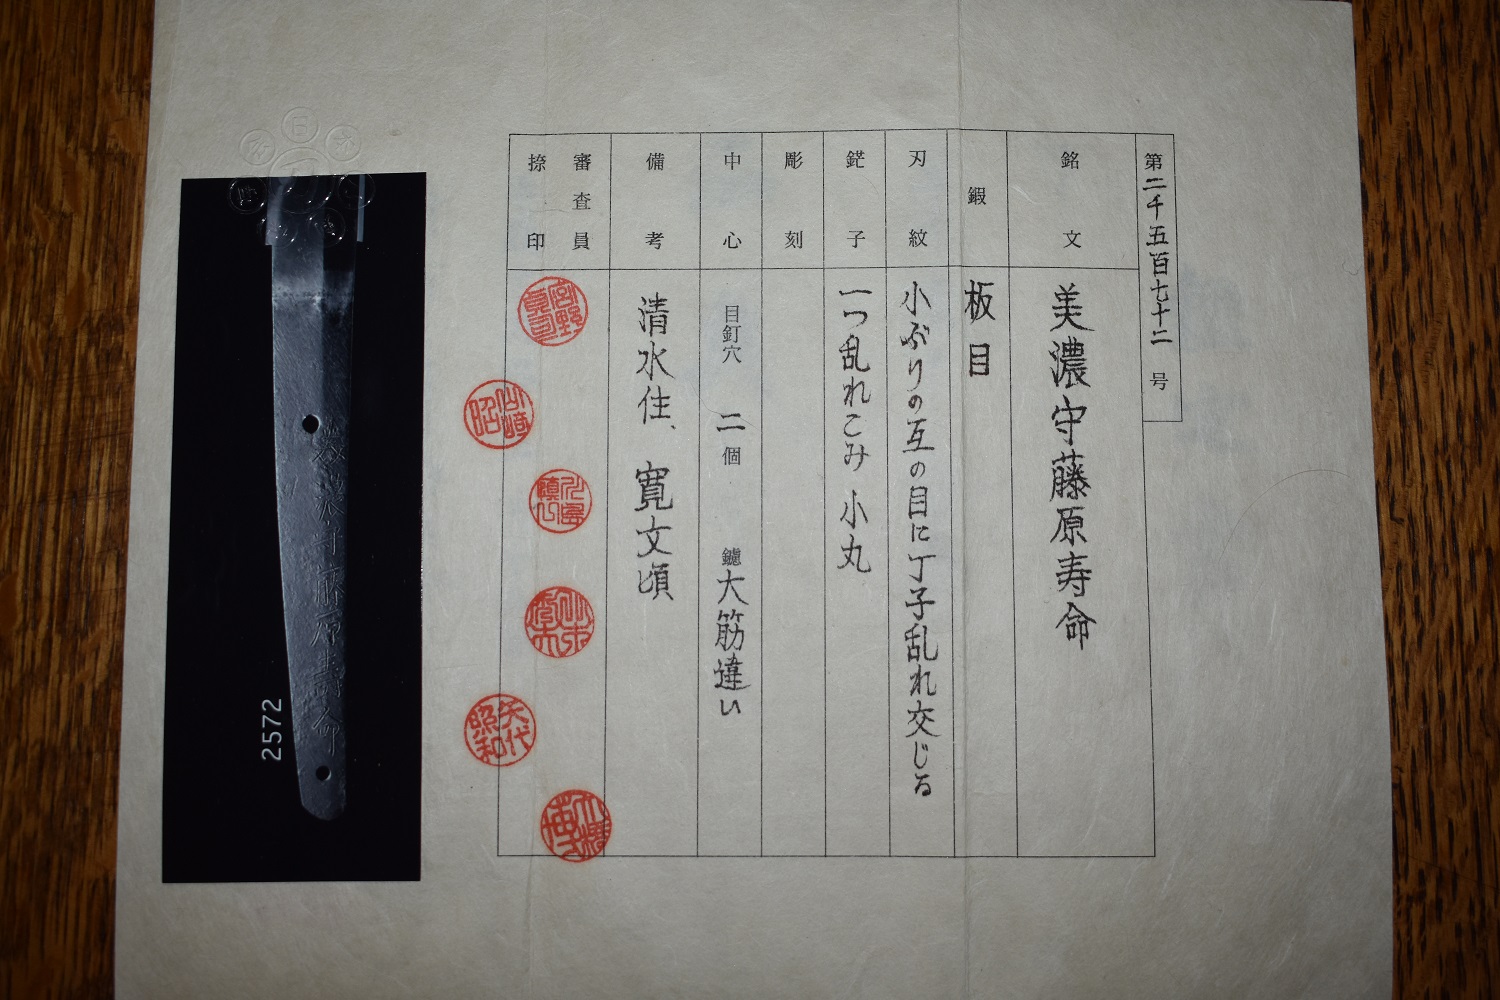 第二千五百七十二号
銘文 美濃守藤原寿命
鍜 板目
刃紋 小ぶりの互の目に丁子乱れ交じる
鋩子 一つ乱れこみ 小丸
彫刻
中心 目釘穴 二個 鑢 大筋違い
備考 清水住、寛文頃
審査員
捺印
矢代昭和
2572
美濃守藤原寿命